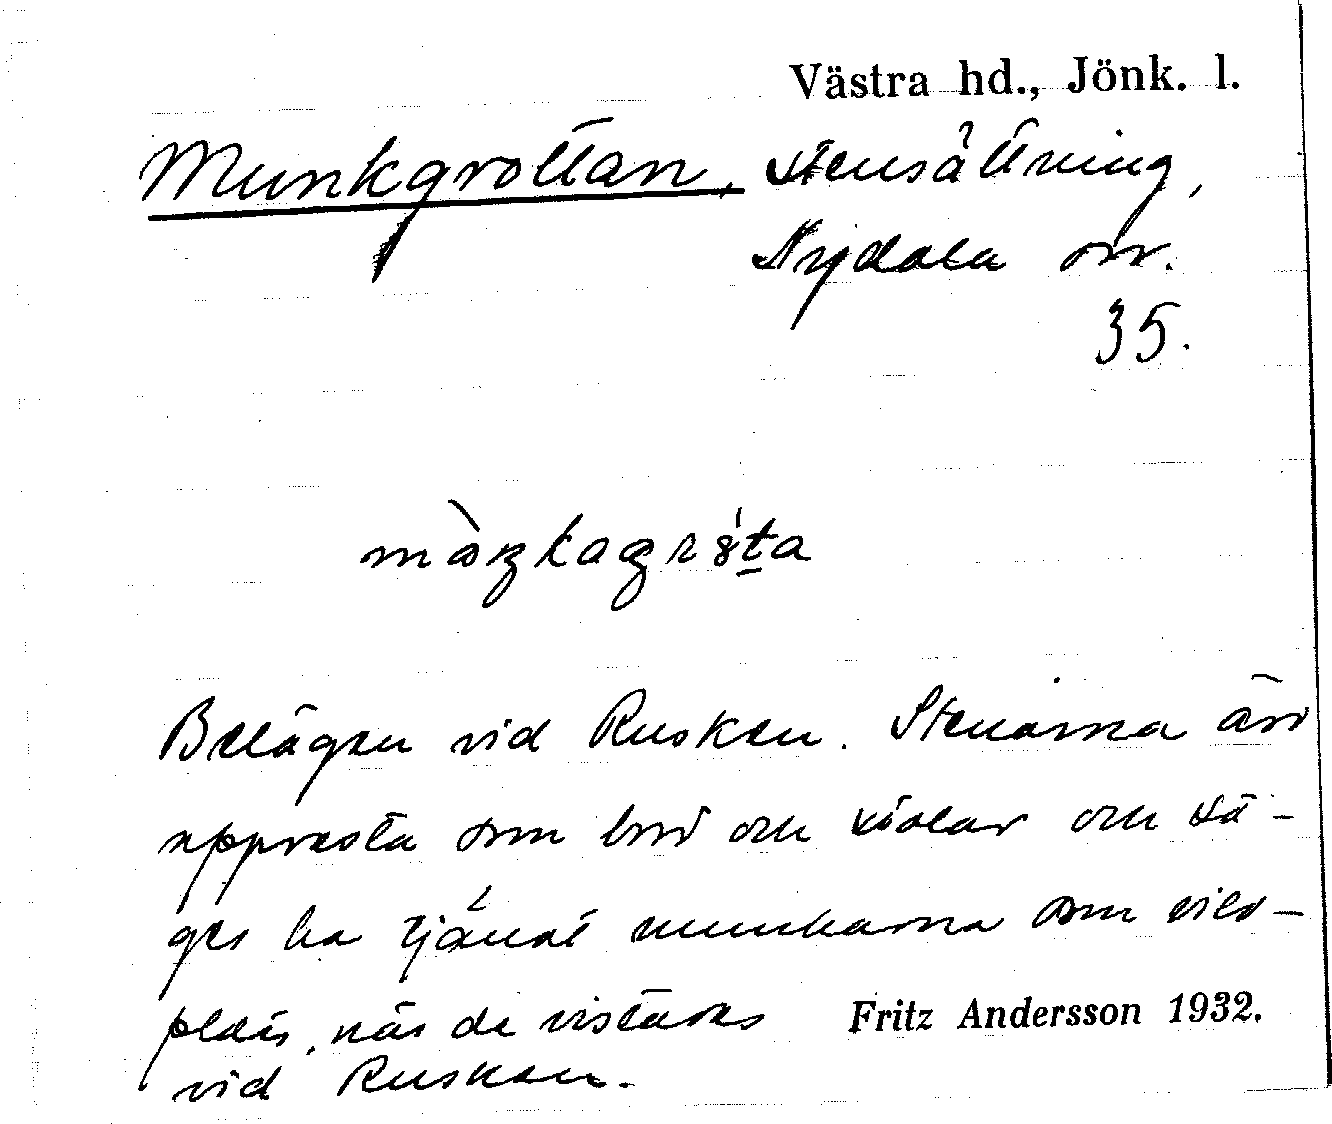 Västra hd., Jönk. l.
Munkgrottan, stensättning,
Nydala sn.
35.
Belägen vid Rusken. Stenarna äro
uppresta som bord och stolar och sä-
ges ha tjänat munkarna som vilo-
plats, när de vistades
Fritz Andersson 1932.
vid Rusken.